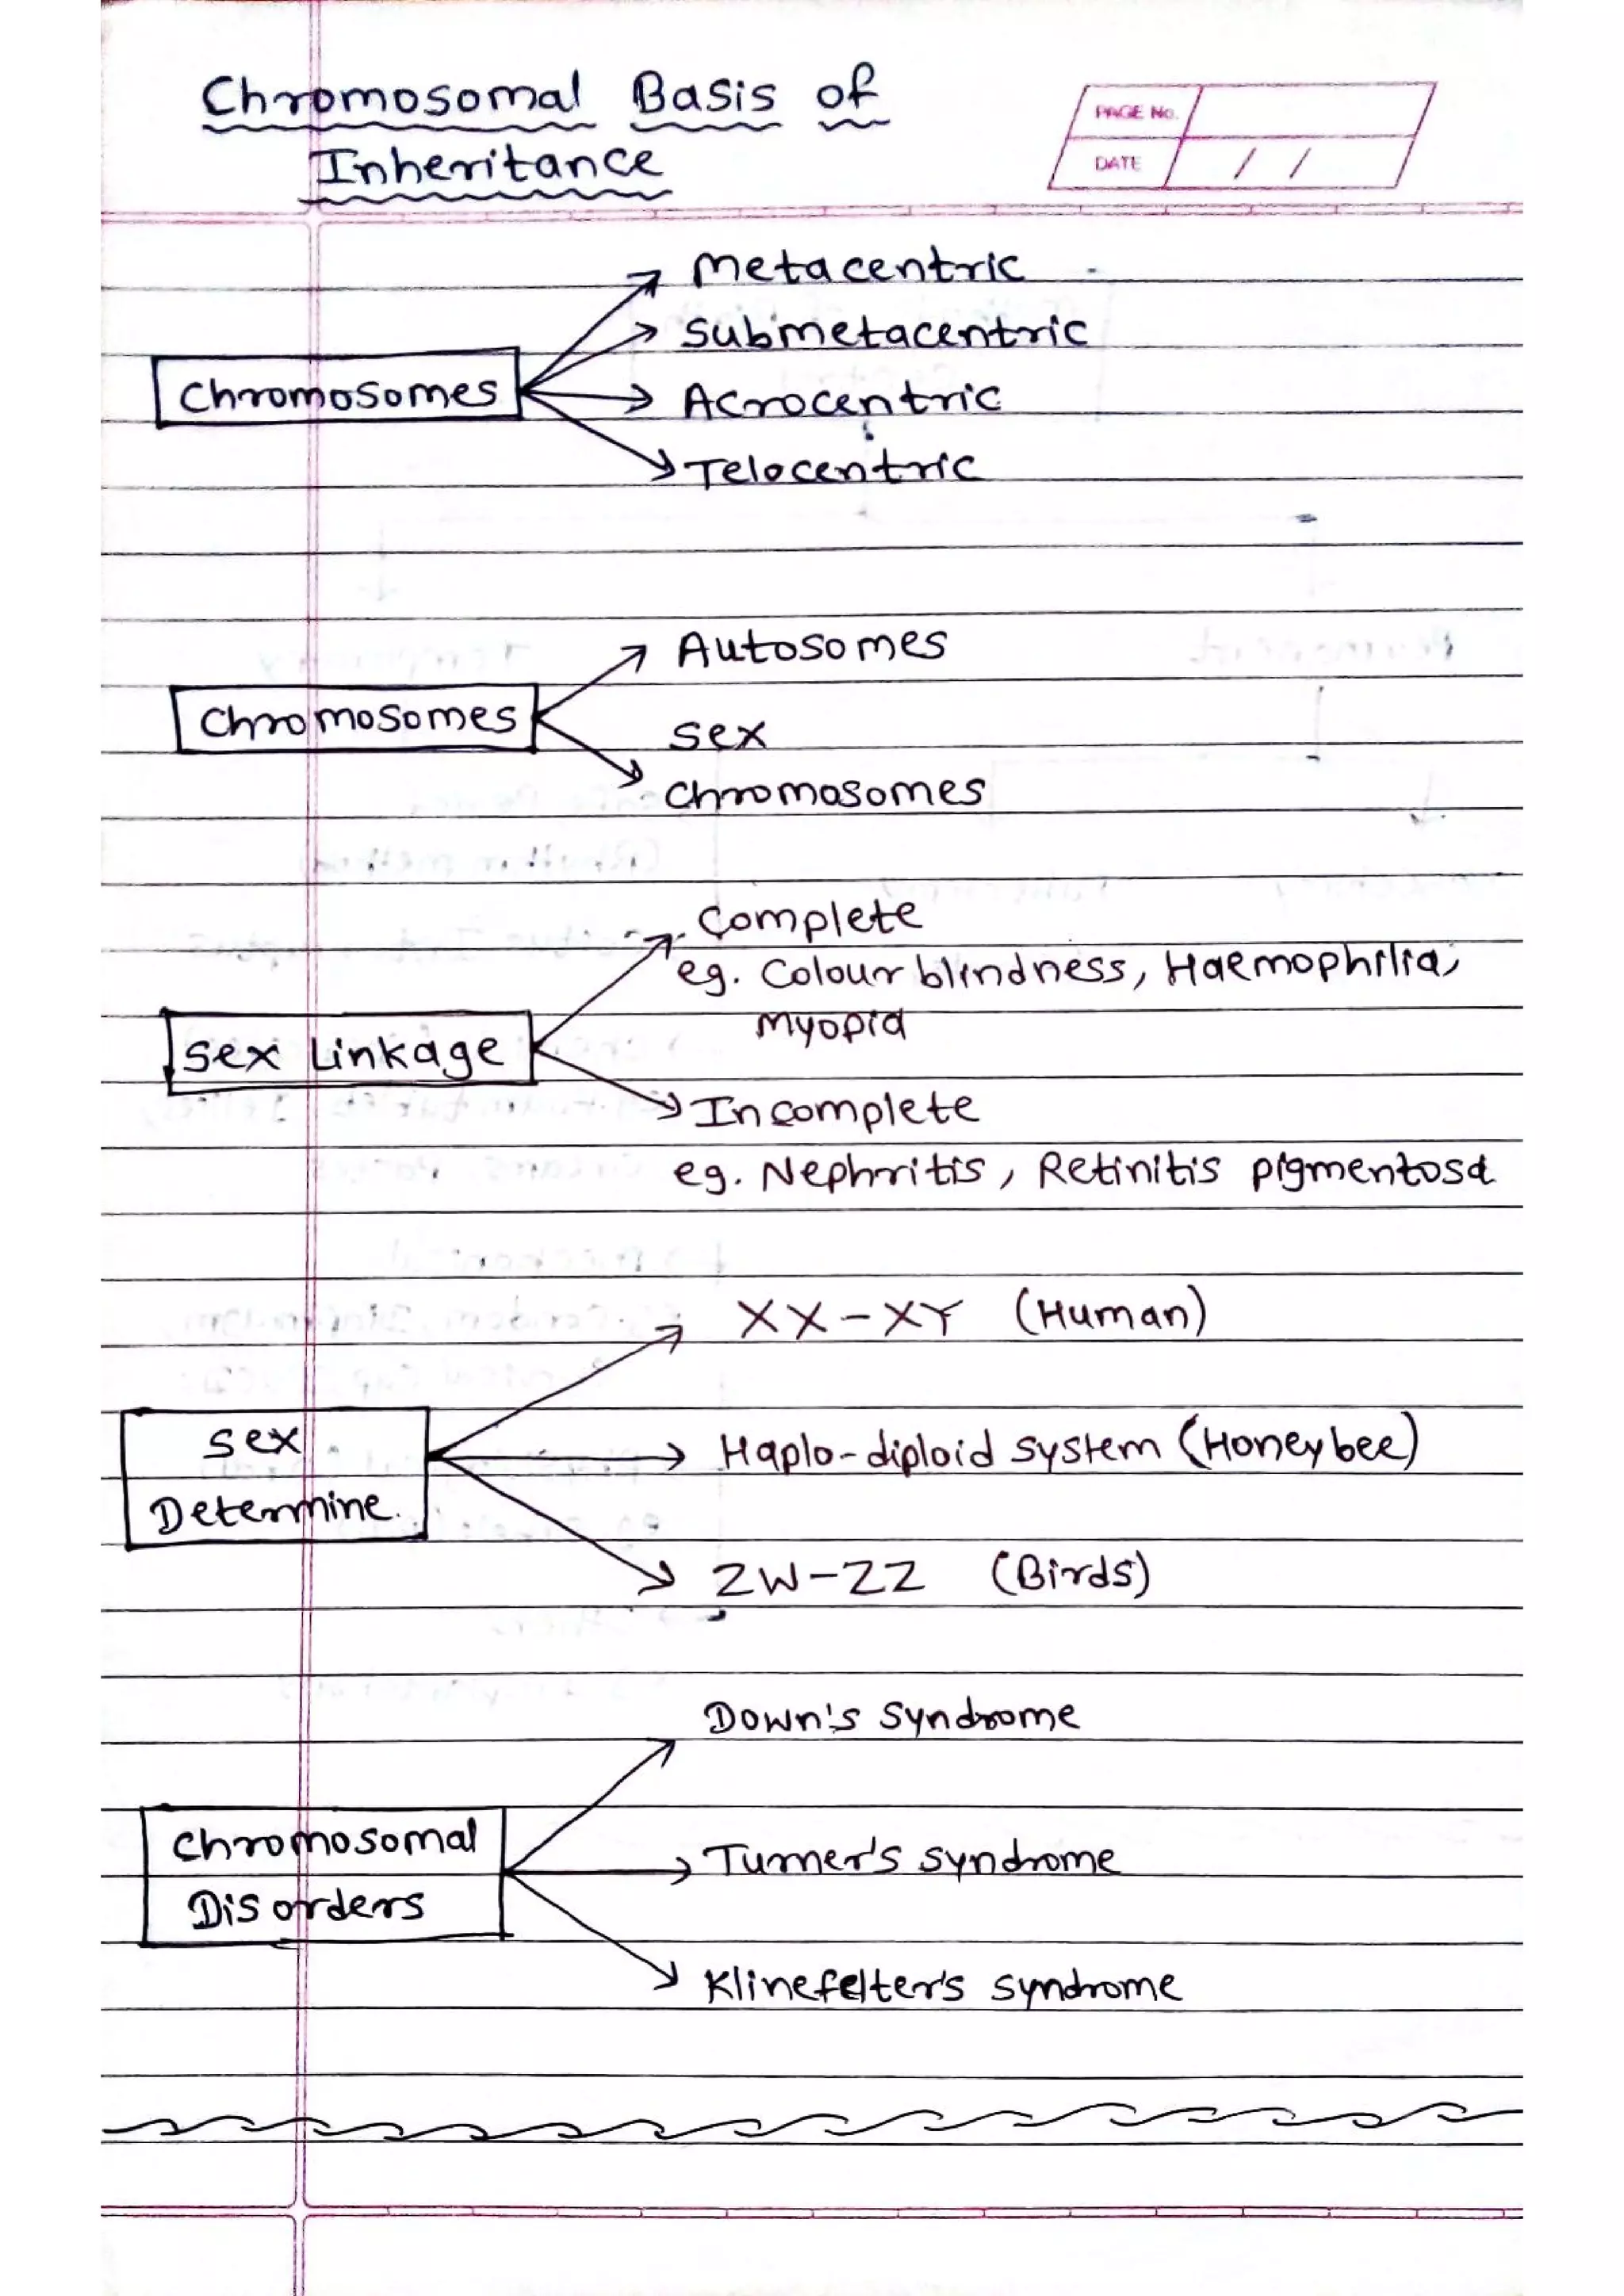 Chromosomal Basis of
Inheritance
PAGE No.
DATE / /
Metacentric
Submetacentric
Chromosomes
Acrocentric
Telocentric
Autosomes
Chromosomes
Sex
Chromosomes
Complete
eg. Colour blindness, Haemophilia,
Myopia
Sex Linkage
Incomplete
eg. Nephritis, Retinitis pigmentosa
XX-XY (Human)
Sex
Determine.
Haplo-diploid system (Honeybee)
ZW-ZZ (Birds)
Down's Syndrome
Chromosomal
Disorders
Turner's syndrome
Klinefelter's syndrome